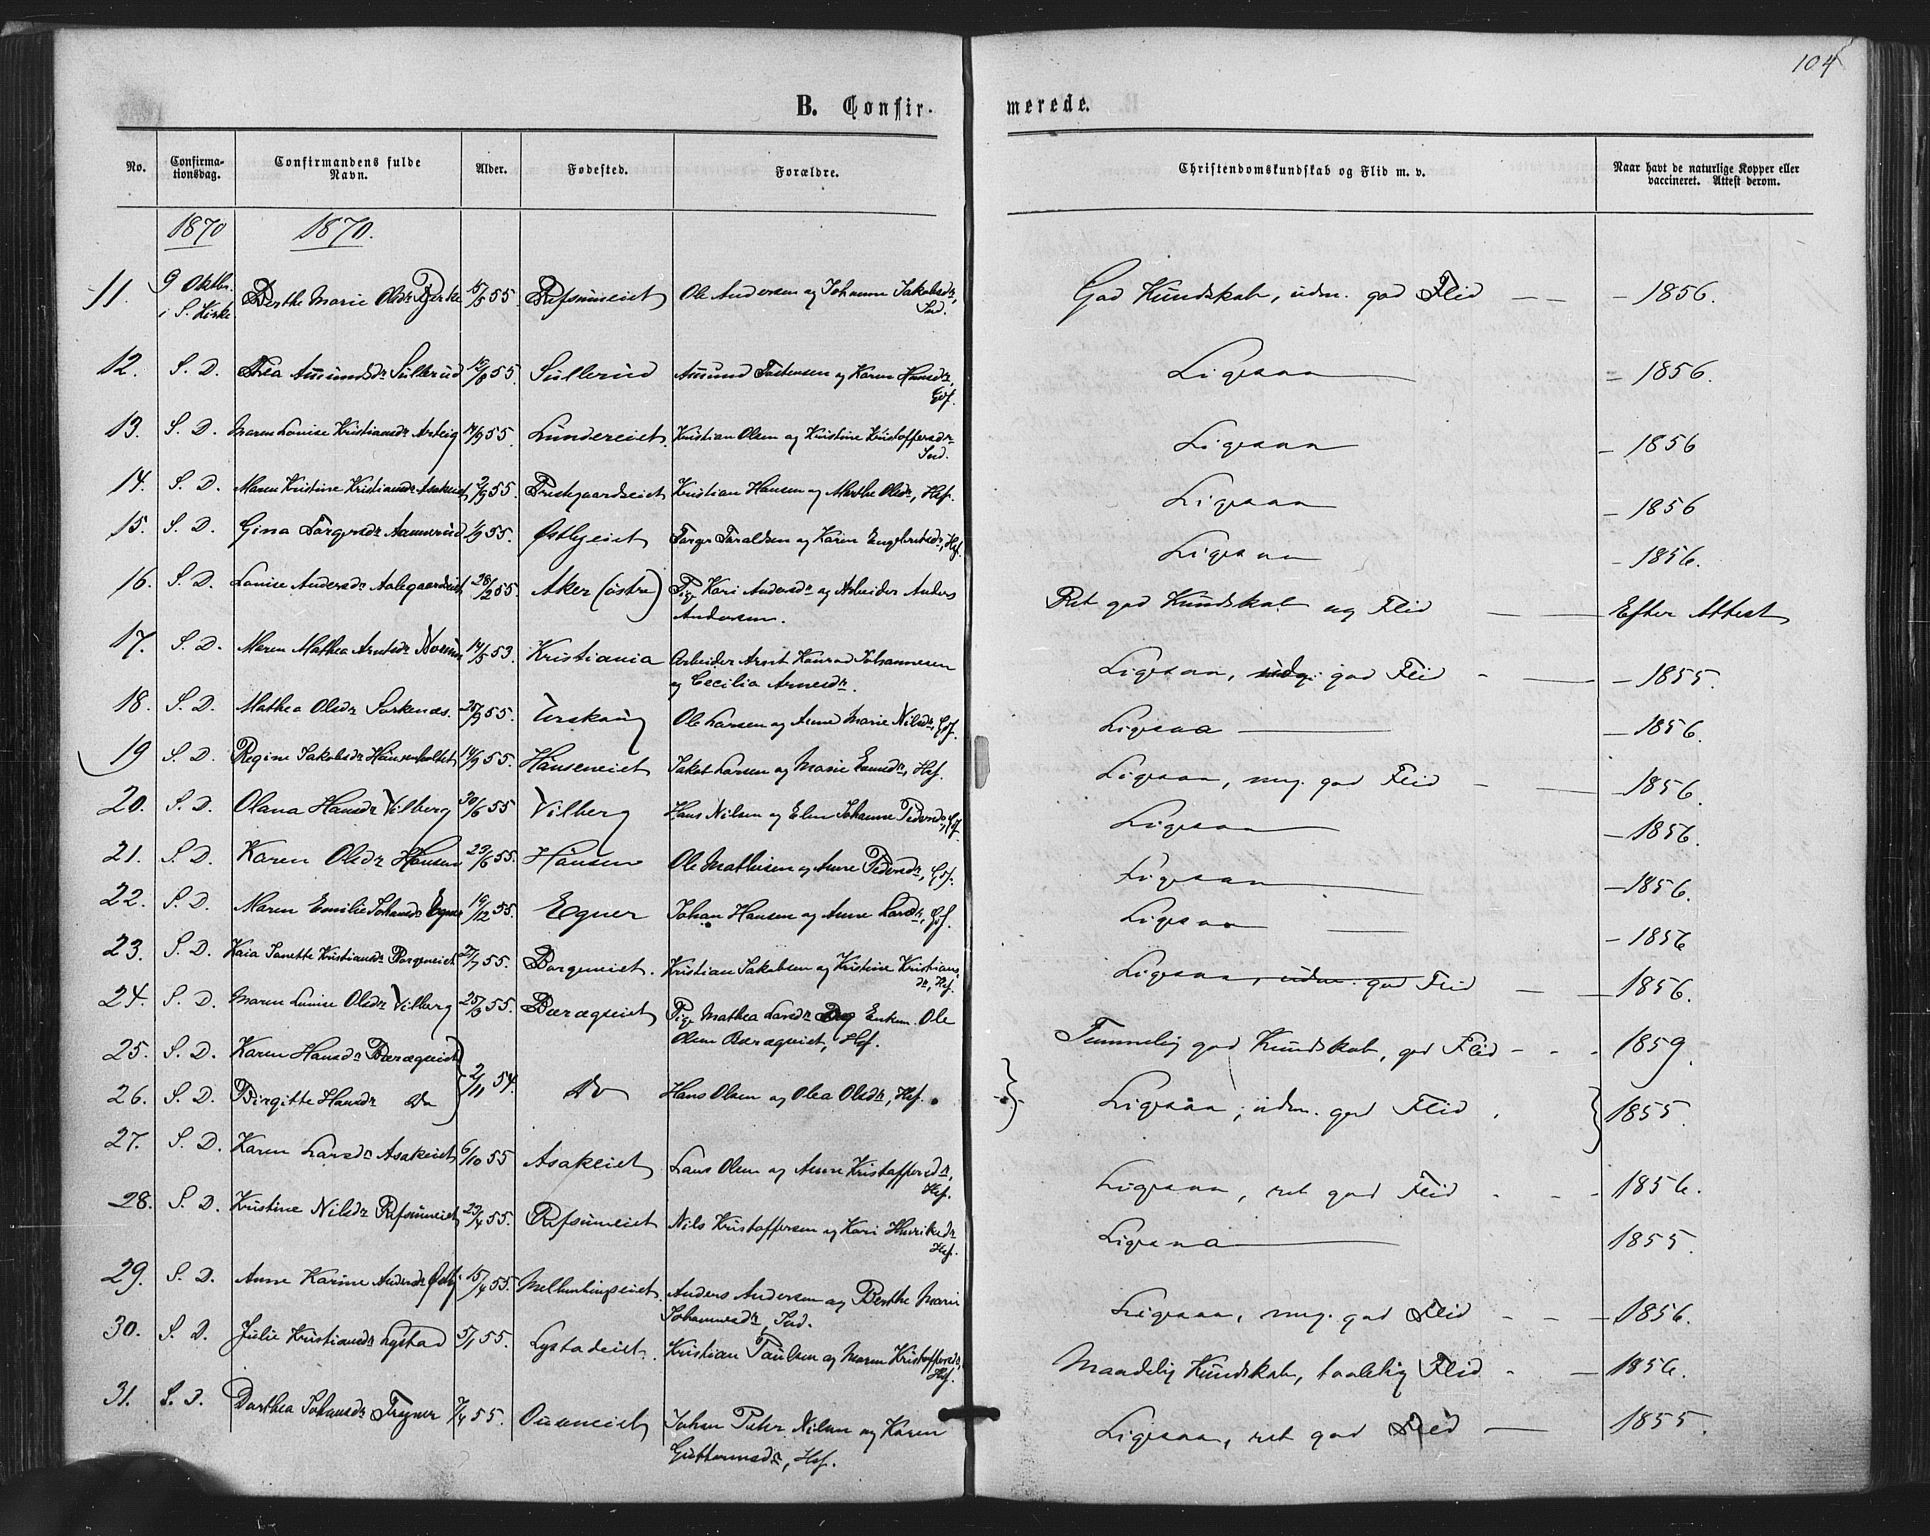 104
B. Confir-
merede.
No.
Confirma-
tionsdag.
Confirmandens fulde
Navn.
Alder.
Fødested.
Forældre.
Christendomskundskab og Flid m. v.
Naar havt de naturlige Kopper eller
vaccineret. Attest derom.
1870 1870.
11. 9 Oktbr. i S. Kirke Berthe Marie Olsdr Bjerke 5/5 55 Refsumeiet Ole Andersen og Johanne Jakobsdr, Ind. God Kundskab, udm. god Flid — — – 1856.
12. S. D. Thea Amundsdr Sullerud 12/8 55. Sullerud Amund Torstensen og Karen Hansdr, Gbf. Ligesaa – 1856.
13. S. D. Maren Lovise Kristiansdr Arteig 14/9 55. Lundereiet Kristian Olsen og Kristine Kristoffersdr Ind. Ligesaa – 1856
14. S. D. Maren Kristine Kristiansdr Asakeiet 2/9 55. Prestgaardseiet Kristian Hansen og Marthe Olsdr, Hsf. Ligesaa – 1856
15. S. D. Gina Torgersdr Aamerud 1/9 55. Østbyeiet Torger Taraldsen og Karen Engebretsdr, Hsf. Ligesaa – 1856.
16. S. D. Lovise Andersdr Aalegaardseiet 28/2 55. Aker (østre) Pige Kari Andersdr og Arbeider Anders Andersen. Ret god Kundskab og Flid — Efter Attest
17. S. D. Maren Mathea Arntsdr 14/5 53. Kristiania Arbeider Arnt Konrad Johannesen og Cecilia Arnesdr. Ligesaa, god Flid – 1855.
18. S. D. Mathea Olsdr Sorknæs. 25/9 55. Urskoug Ole Larsen og Anne Marie Nilsdr, Gbf. Ligesaa – 1856.
19 S. D. Regine Jakobsdr 14/9 55. Hauseneiet Jakob Larsen og Marie Hsf. Ligesaa, mg. god Flid – 1856.
20. S. D. Olava Hansdr Vilberg 30/6 55 Vilberg Hans Nilsen og Elen Johanne Pedersdr, Gbf. Ligesaa – 1856.
21. S. D. Karen Olsdr Hausen 23/6 55. Hausen Ole Mathisen og Anne Pedersdr, Gbf. Ligesaa – 1856.
22. S. D. Maren Emilie Johansdr Egner 19/12 55. Egner Johan Hansen og Anne Larsdr, Gbf. Ligesaa – 1856
23. S. D. Kaia Janette Kristiansdr Borgeneiet 27/7 55. Borgeneiet. Kristian Jakobsen og Kristine Kristiansdr, Hsf. Ligesaa, udm. god Flid — – 1856.
24. S. D. Maren Lovise Olsdr Vilberg 25/8 55. Bæreqveiet Pige Mathea Larsdr og Enkem. Ole Olsen Bæreqveiet, Hsf. Temmelig god Kundskab, god Flid – – – 1859.
25. S. D. Karen Hansdr Bæreqveiet
26. S. D. Birgitte Hansdr Do 2/11 54. Do Hans Olsen og Olea Olsdr, Hsf. Ligesaa, udm. god Flid. 1855.
27. S. D. Karen Larsdr Asakeiet 6/10 55 Asakeiet Lars Olsen og Anne Kristoffersdr, Hsf. Ligesaa, ret god Flid – – 1856.
28. S. D. Kristine Nilsdr Refsumeiet 23/4 55. Refsumeiet Nils Kristoffersen og Kari Henriksdr Hsf. Ligesaa 1855.
29. S. D. Anne Karine Andersdr Østby 15/4 55. Anders Andersen og Berthe Marie Johannesdr, Ind. Ligesaa, mg. god Flid – – – 1856.
30. S. D. Julie Kristiansdr Lystad 5/1 55. Lystadeiet. Kristian Paulsen og Maren Kristoffersdr, Hsf. Maadelig Kundskab, taalelig Flid – – 1856.
31. S. D. Dorthea Johansdr Frogner 7/4 55. Johan Peter Nilsen og Karen Guttormsdr, Hsf. Ligesaa, ret god Flid — – 1855.